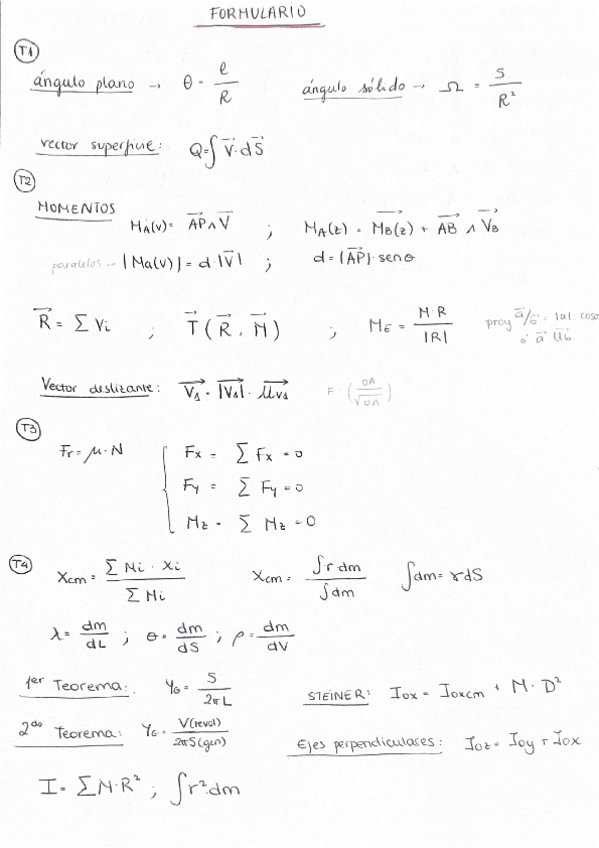 FORMULARIO
T1
ángulo plano → θ = e/R    ángulo sólido → Ω = S/R²
vector superficie: Q = ∫ V⃗ · dS⃗
T2
MOMENTOS
MA(v) = AP⃗ ∧ V⃗ ; MA(z) = MB(z)⃗ + AB⃗ ∧ VB⃗
paralelos → |Ma(v)| = d · |V⃗| ; d = |AP⃗| · sen θ
R⃗ = Σ Vi ; T⃗ (R⃗, M⃗) ; ME = M·R/|R|    proy a⃗/b⃗ = |a| cos α
ó a⃗ u⃗b
Vector deslizante: VΔ⃗ = |VΔ|⃗ · μVΔ⃗    F · (OA/√OA)
T3
Fr = μ · N    Fx = Σ Fx = 0
Fy = Σ Fy = 0
Mz = Σ Mz = 0
T4
Xcm = Σ Mi · Xi / Σ Mi    Xcm = ∫ r dm / ∫ dm    ∫ dm = γ dS
λ = dm/dL ; θ = dm/dS ; ρ = dm/dV
1er Teorema: YG = S/2πL    STEINER: Iox = Ioxcm + M · D²
2do Teorema: YG = V(revol)/2πS(gen)    Ejes perpendiculares: Ioz = Ioy + Iox
I = Σ M · R² ; ∫ r² dm